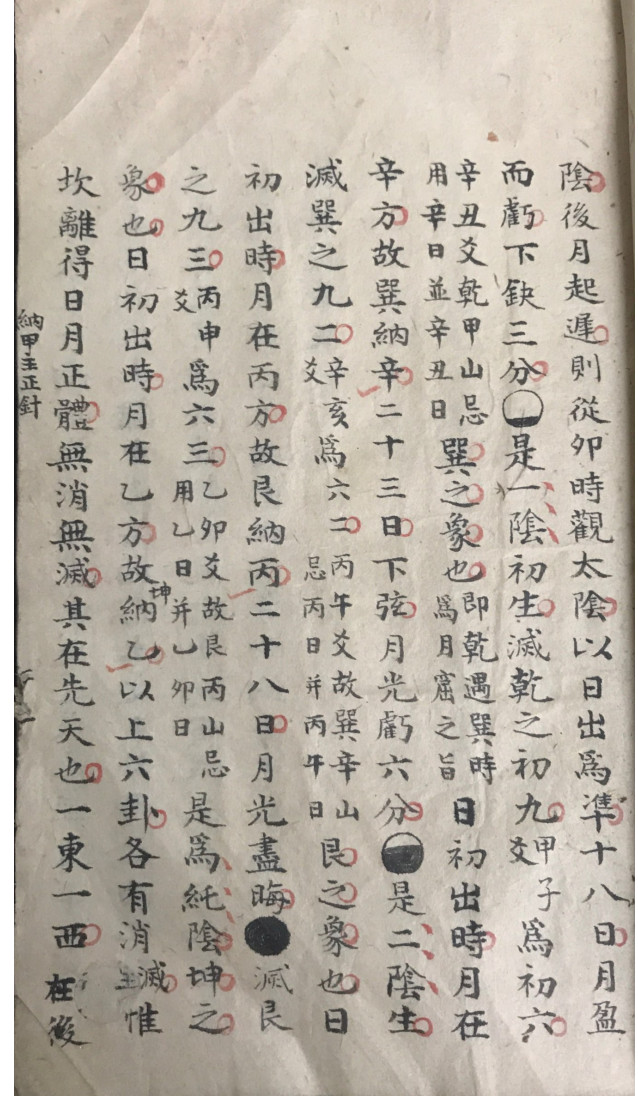 陰後月起遲則從卯時觀太陰以日出爲準十八日月盈
而虧下鈌三分是一陰初生滅乾之初九甲子爻爲初六
辛丑爻乾甲山忌用辛日並辛丑日巽之象也即乾遇巽時爲月窟之旨日初出時月在
辛方故巽納辛二十三日下弦月光虧六分是二陰生
滅巽之九二辛亥爻爲六二丙午爻故巽辛山忌丙日并丙午日艮之象也日
初出時月在丙方故艮納丙二十八日月光盡晦滅艮
之九三丙申爻爲六三乙卯爻故艮丙山忌用乙日并乙卯日是爲純陰坤之
象也日初出時月在乙方故坤納乙以上六卦各有消滅惟
坎離得日月正體無消無滅其在先天也一東一西在後
納甲主正針